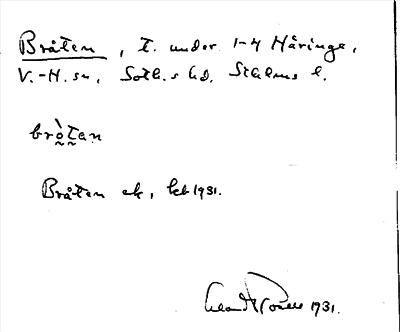 Bråten, t. under 1-4 Håringe,
V.-H. sn, Soth.s hd, Sthlms l.
bròtan
Bråten ek, kb 1931.
1931.